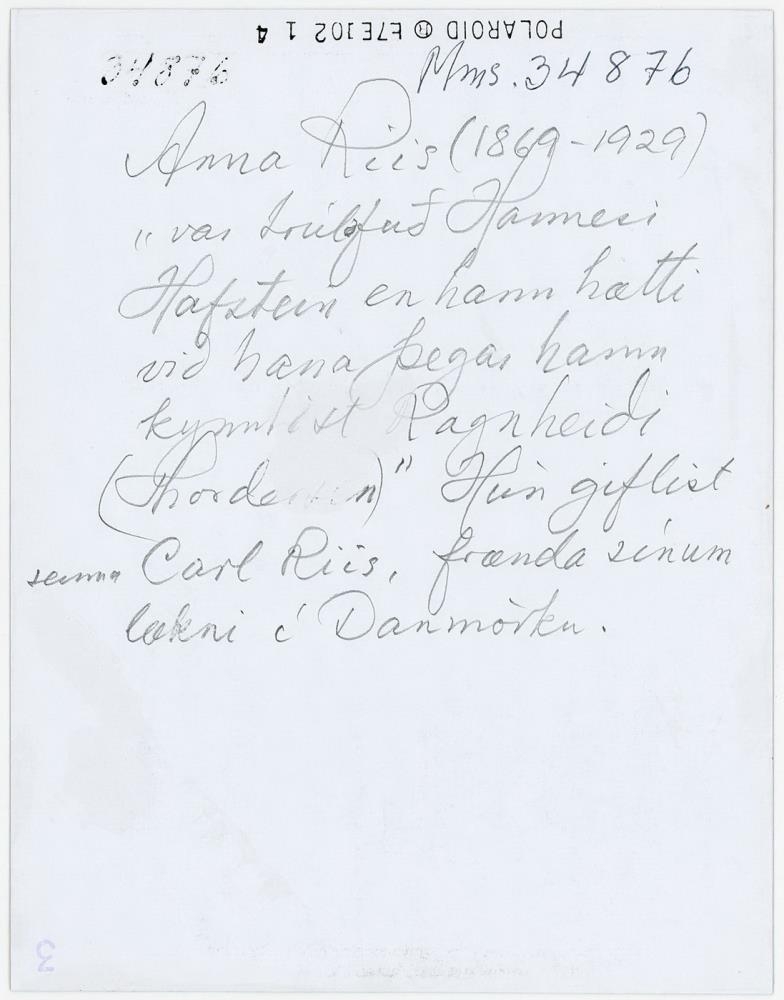 POLAROID ® L7E102 1 4
34876
Mms. 34876
Anna Riis (1869-1929)
„var trúlofuð Hannesi
Hafstein en hann hætti
við hana þegar hann
kynntist Ragnheiði
(Thordersen)" Hún giftist
senna Carl Riis, frænda sínum
lækni í Danmörku.
3